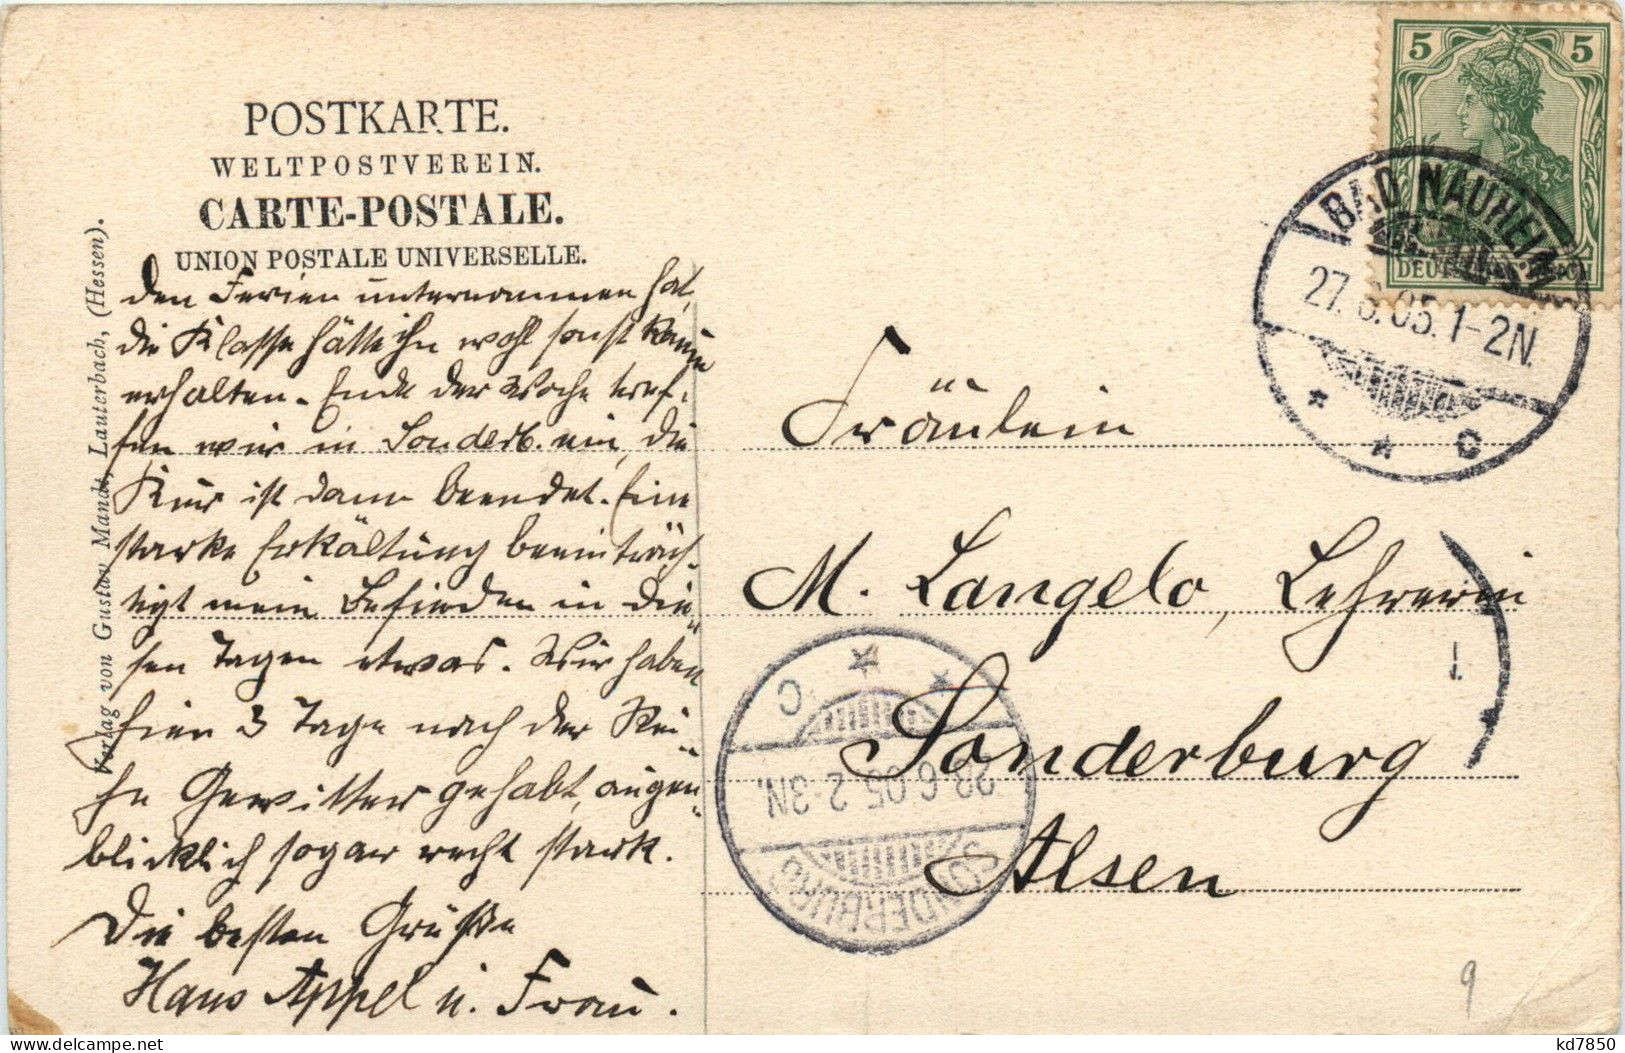 POSTKARTE.
WELTPOSTVEREIN.
CARTE-POSTALE.
UNION POSTALE UNIVERSELLE.
Verlag von Gustav Mandt, Lauterbach, (Hessen).
den Ferien unternommen hat,
die Klasse hätte ihn wohl sonst kaum
erhalten. Ende der Woche tref-
fen wir in Sonderb. ein, die
Kur ist dann beendet. Eine
starke Erkältung beeinträch-
tigt mein Befinden in die-
sen Tagen etwas. Wir haben
hier 3 Tage nach der Rei-
he Gewitter gehabt, augen-
blicklich sogar recht stark.
Die besten Grüße
Hans Appel u. Frau.
5 5
DEUTSCHES REICH
BAD NAUHEIM
27.6.05.1-2N.
* * C
Fräulein
M. Langelo, Lehrerin
Sonderburg
Alsen
SONDERBURG
28.6.05.2-3N.
* * C
9
kd7850